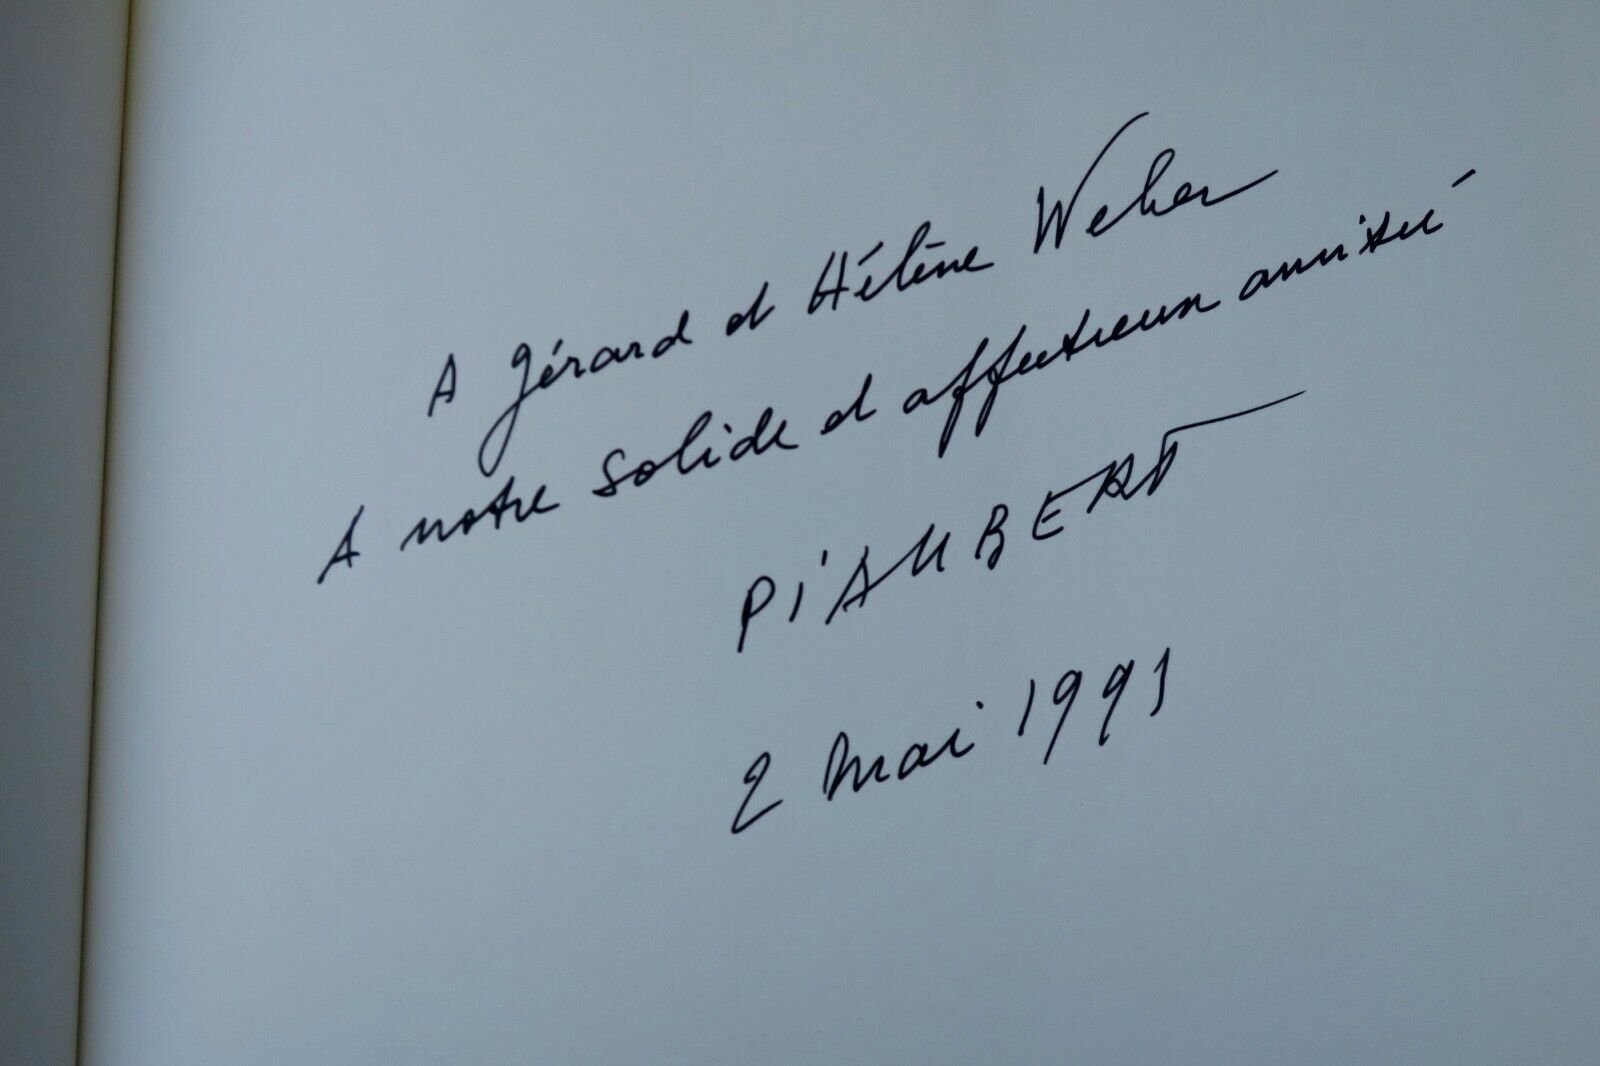 A Gérard et Hélène Weber
A notre solide et affectueux amitié
PiAUBERT
2 mai 1991